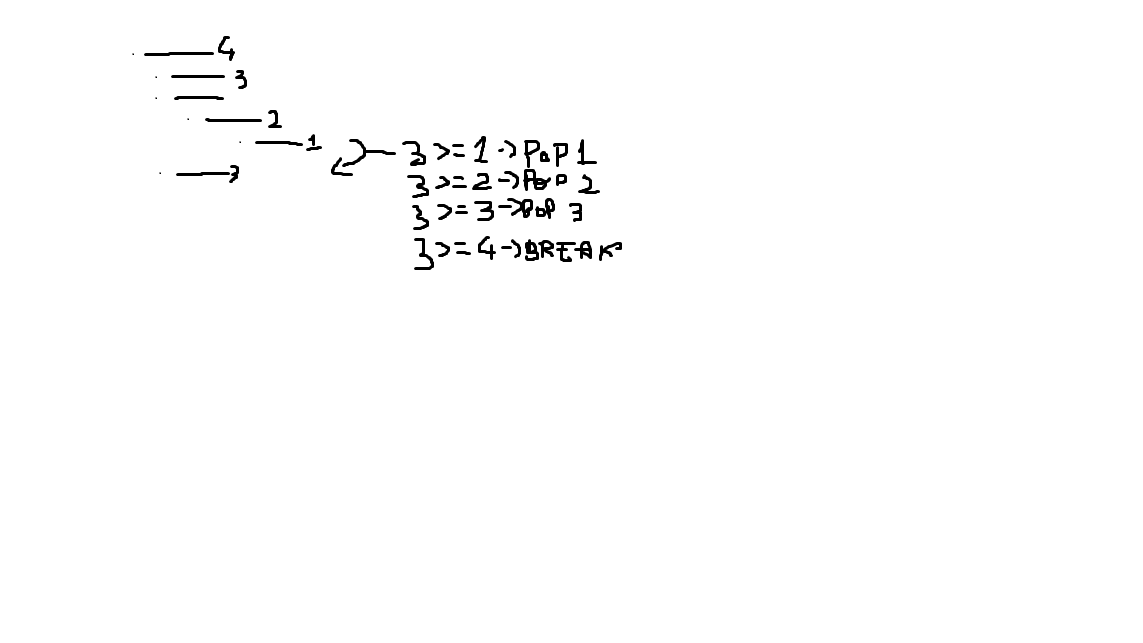 4
3
2
1
3
3 >= 1 -> POP 1
3 >= 2 -> POP 2
3 >= 3 -> POP 3
3 >= 4 -> BREAK